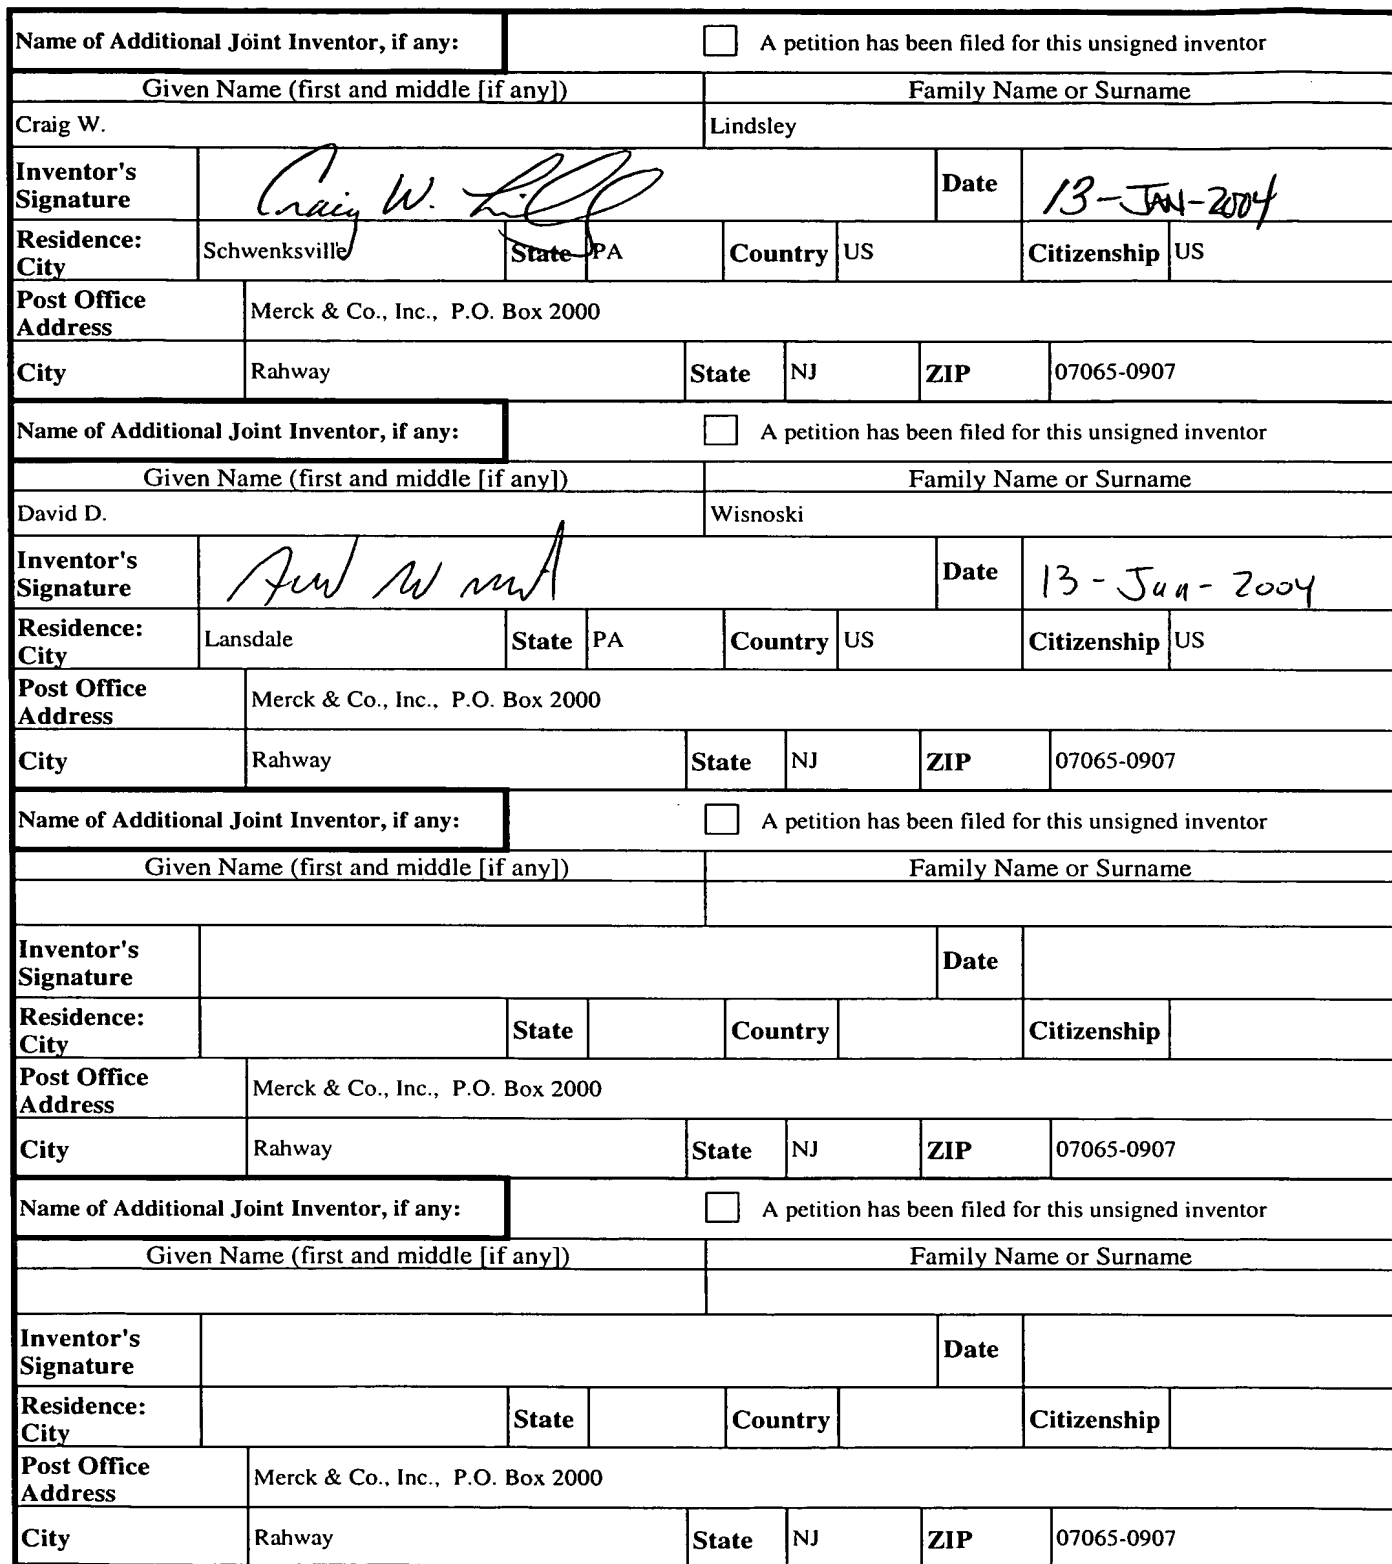 Name of Additional Joint Inventor, if any: A petition has been filed for this unsigned inventor
Given Name (first and middle [if any]) Family Name or Surname
Craig W. Lindsley
Inventor's Signature Craig W. Date 13-JAN-2004
Residence: City Schwenksville State PA Country US Citizenship US
Post Office Address Merck & Co., Inc., P.O. Box 2000
City Rahway State NJ ZIP 07065-0907
Name of Additional Joint Inventor, if any: A petition has been filed for this unsigned inventor
Given Name (first and middle [if any]) Family Name or Surname
David D. Wisnoski
Inventor's Signature Date 13-Jan-2004
Residence: City Lansdale State PA Country US Citizenship US
Post Office Address Merck & Co., Inc., P.O. Box 2000
City Rahway State NJ ZIP 07065-0907
Name of Additional Joint Inventor, if any: A petition has been filed for this unsigned inventor
Given Name (first and middle [if any]) Family Name or Surname
Inventor's Signature Date
Residence: City State Country Citizenship
Post Office Address Merck & Co., Inc., P.O. Box 2000
City Rahway State NJ ZIP 07065-0907
Name of Additional Joint Inventor, if any: A petition has been filed for this unsigned inventor
Given Name (first and middle [if any]) Family Name or Surname
Inventor's Signature Date
Residence: City State Country Citizenship
Post Office Address Merck & Co., Inc., P.O. Box 2000
City Rahway State NJ ZIP 07065-0907